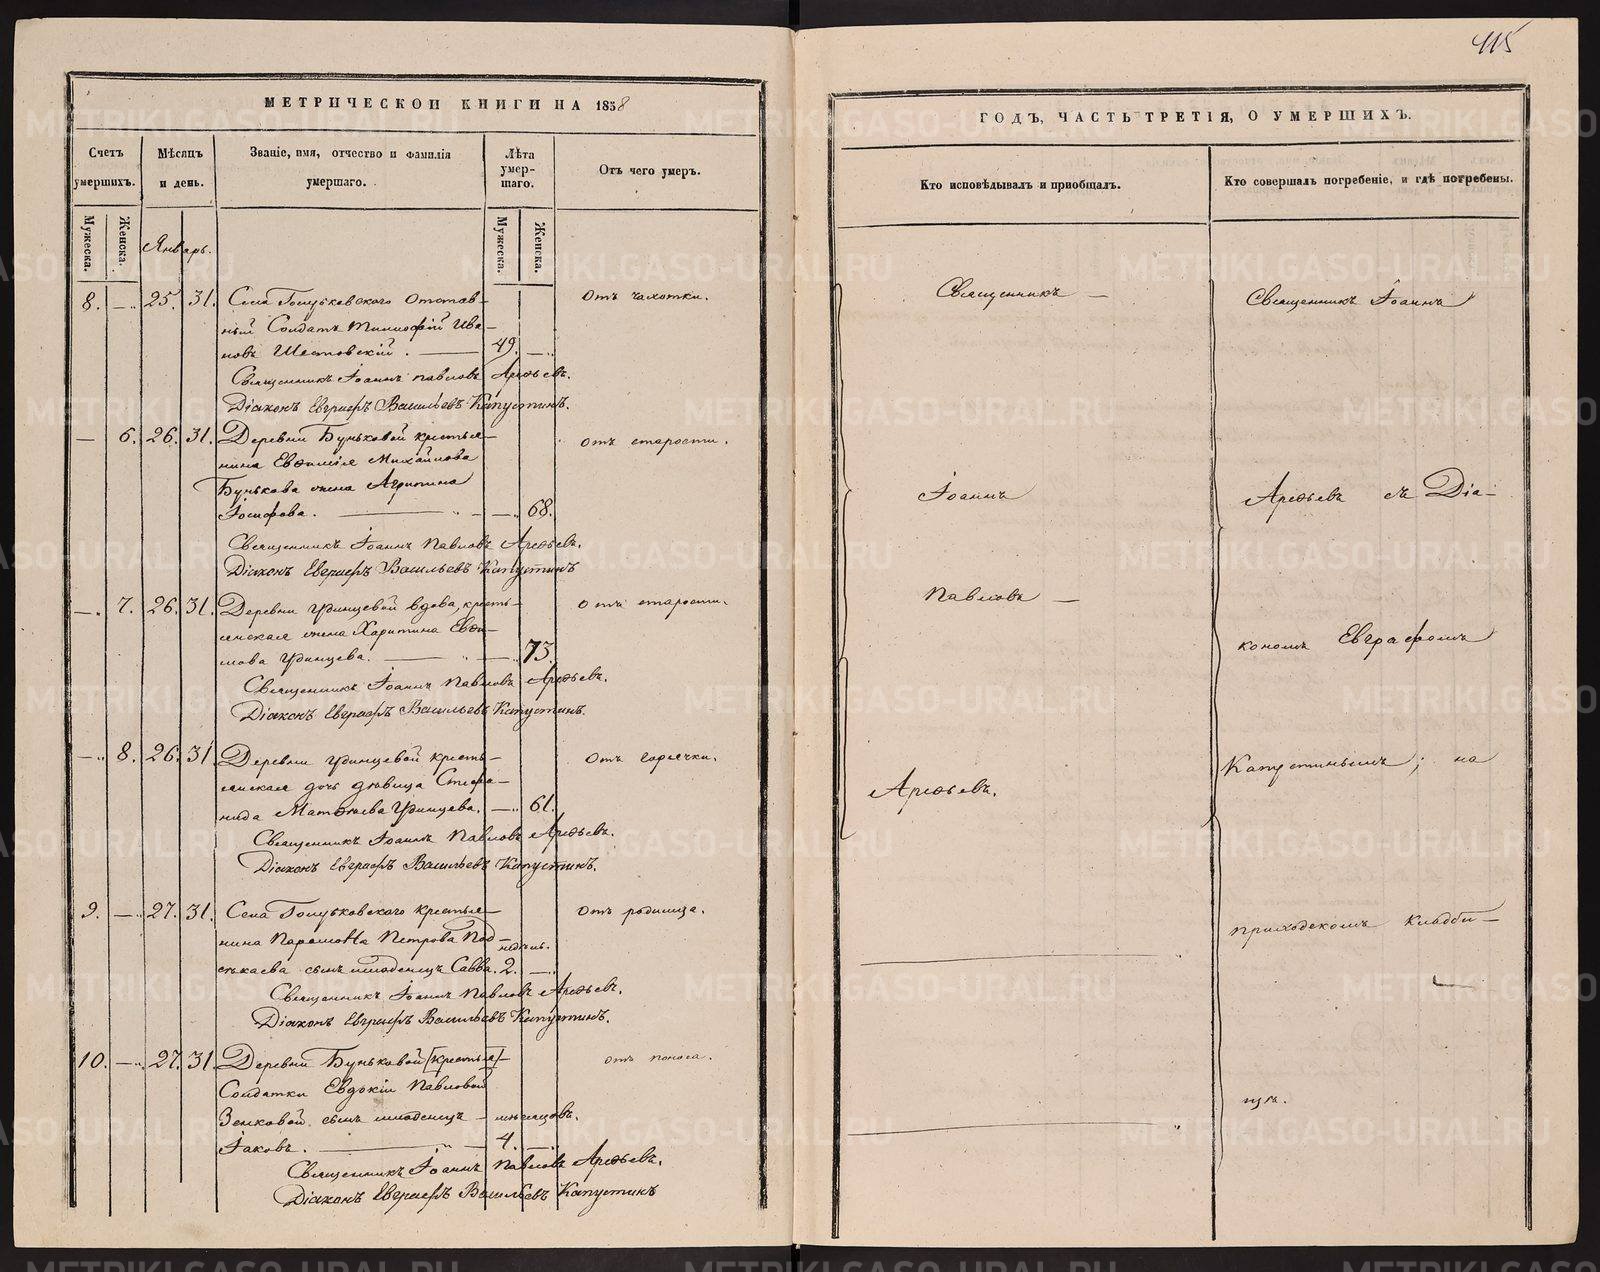 415
МЕТРИЧЕСКОЙ КНИГИ НА 1858
Счетъ умершихъ.
Мѣсяцъ и день.
Званіе, имя, отчество и фамилія умершаго.
Лѣта умер-шаго.
Отъ чего умеръ.
Мужеска.
Женска.
Мужеска.
Женска.
Январь.
8. — 25. 31. Села Гоһуековского Отстав-
ный Солдатъ Тимофій Ива-
новъ Шестовскій. — 49. —
Отъ чахотки.
Священникъ Іоаннъ Павловъ Арефьевъ.
Діаконъ Евграфъ Васильевъ Капустинъ.
— 6. 26. 31. Деревни Буньковой крестья-
нина Евфимія Михайлова
Бунькова жена Агрипина
Іосифова. — 68.
отъ старости.
Священникъ Іоаннъ Павловъ Арефьевъ.
Діаконъ Евграфъ Васильевъ Капустинъ
— 7. 26. 31. Деревни Удинцевой вдова, кресть-
янская жена Харитина Евфи-
мова Удинцева. — 73.
отъ старости.
Священникъ Іоаннъ Павловъ Арефьевъ.
Діаконъ Евграфъ Васильевъ Капустинъ.
— 8. 26. 31. Деревни Удинцевой кресть-
янская дочь дѣвица Стефа-
нида Матѳіева Удинцева. — 61.
отъ горячки.
Священникъ Іоаннъ Павловъ Арефьевъ.
Діаконъ Евграфъ Васильевъ Капустинъ.
9. — 27. 31. Села крестья-
нина Парамона Петрова Под-
сынъ младенецъ Савва. недѣль. 2. —
Отъ родимца.
Священникъ Іоаннъ Павловъ Арефьевъ.
Діаконъ Евграфъ Васильевъ Капустинъ.
10. — 27. 31. Деревни Буньковой [крестья]-
Солдатки Евдокіи Павловой
Зенковой сынъ младенецъ — мѣсяцовъ.
Іаковъ. — 4. —
отъ поноса.
Священникъ Іоаннъ Павловъ Арефьевъ.
Діаконъ Евграфъ Васильевъ Капустинъ
ГОДЪ, ЧАСТЬ ТРЕТІЯ, О УМЕРШИХЪ.
Кто исповѣдывалъ и пріобщалъ.
Кто совершалъ погребеніе, и гдѣ погребены.
Священникъ —
Іоаннъ
Павловъ —
Арефьевъ.
Священникъ Іоаннъ
Арефьевъ съ Діа-
кономъ Евграфомъ
Капустинымъ; на
приходскомъ кладби-
щѣ.
METRIKI.GASO-URAL.RU